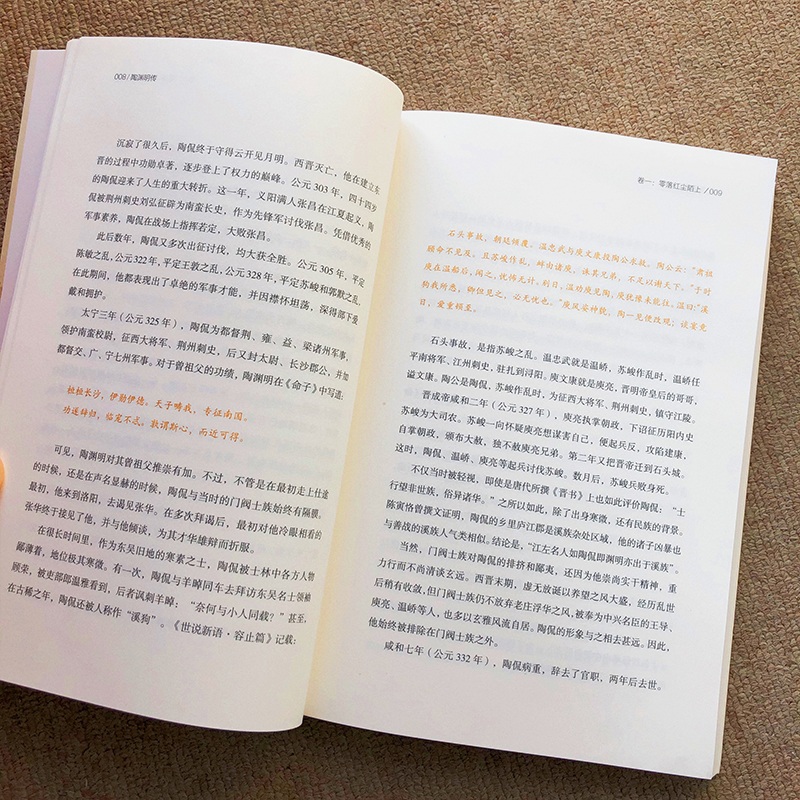 008/陶渊明传
沉寂了很久后，陶侃终于守得云开见月明。西晋灭亡，他在建立东
晋的过程中功勋卓著，逐步登上了权力的巅峰。公元 303 年，四十四岁
的陶侃迎来了人生的重大转折。这一年，义阳蛮人张昌在江夏起义，陶
侃被荆州刺史刘弘征辟为南蛮长史，作为先锋军讨伐张昌。凭借优秀的
军事素养，陶侃在战场上指挥若定，大败张昌。
此后数年，陶侃又多次出征讨伐，均大获全胜。公元 305 年，平定
陈敏之乱，公元 322 年，平定王敦之乱，公元 328 年，平定苏峻和郭默之乱。
在此期间，他都表现出了卓绝的军事才能，并因襟怀坦荡，深得部下爱
戴和拥护。
太宁三年（公元 325 年），陶侃为都督荆、雍、益、梁诸州军事，
领护南蛮校尉，征西大将军、荆州刺史，后又封太尉、长沙郡公，并加
都督交、广、宁七州军事。对于曾祖父的功绩，陶渊明在《命子》中写道：
桓桓长沙，伊勋伊德。天子畴我，专征南国。
功遂辞归，临宠不忒。孰谓斯心，而近可得。
可见，陶渊明对其曾祖父推崇有加。不过，不管是在最初走上仕途
的时候，还是在声名显赫的时候，陶侃与当时的门阀士族始终有隔膜。
最初，他来到洛阳，去谒见张华。在多次拜谒后，最初对他冷眼相看的
张华终于接见了他，并与他倾谈，为其才华雄辩而折服。
在很长时间里，作为东吴旧地的寒素之士，陶侃被士林中各方人物
鄙薄着，地位极其寒微。有一次，陶侃与羊晫同车去拜访东吴名士领袖
顾荣，被吏部郎温雅看到，后者讽刺羊晫：“奈何与小人同载？”甚至，
在古稀之年，陶侃还被人称作“溪狗”。《世说新语·容止篇》记载：
卷一：零落红尘陌上 / 009
石头事故，朝廷倾覆。温忠武与庾文康投陶公求救。陶公云：“肃祖
顾命不见及。且苏峻作乱，衅由诸庾，诛其兄弟，不足以谢天下。”于时
庾在温船后，闻之，忧怖无计。别日，温劝庾见陶，庾犹豫未能往。温曰：“溪
狗我所悉，卿但见之，必无忧也。”庾风姿神貌，陶一见便改观；谈宴竟
日，爱重顿至。
石头事故，是指苏峻之乱。温忠武就是温峤，苏峻作乱时，温峤任
平南将军、江州刺史，驻扎到浔阳。庾文康就是庾亮，晋明帝皇后的哥哥，
谥文康。陶公是陶侃，苏峻作乱时，为征西大将军、荆州刺史，镇守江陵。
晋成帝咸和二年（公元 327 年），庾亮执掌朝政，下诏征历阳内史
苏峻为大司农。苏峻一向怀疑庾亮想谋害自己，便起兵反，攻陷建康，
自掌朝政，颁布大赦，独不赦庾亮兄弟。第二年又把晋帝迁到石头城。
这时，陶侃、温峤、庾亮等起兵讨伐苏峻。数月后，苏峻兵败身死。
不仅当时被轻视，即使是唐代所撰《晋书》上也如此评价陶侃：“士
行望非世族，俗异诸华。”之所以如此，除了出身寒微，还有民族的背景。
陈寅恪曾撰文证明，陶侃的乡里庐江郡是溪族杂处区域，他的诸子凶暴也
与善战的溪族人气类相似。结论是，“江左名人如陶侃即渊明亦出于溪族”。
当然，门阀士族对陶侃的排挤和鄙夷，还因为他崇尚实干精神，重
力行而不尚清谈玄远。西晋末期，虚无放诞以养望之风大盛，经历乱世
后稍有收敛，但门阀士族仍不放弃老庄浮华之风，被奉为中兴名臣的王导、
庾亮、温峤等人，也多以玄雅风流自居。陶侃的形象与之相去甚远。因此，
他始终被排除在门阀士族之外。
咸和七年（公元 332 年），陶侃病重，辞去了官职，两年后去世。